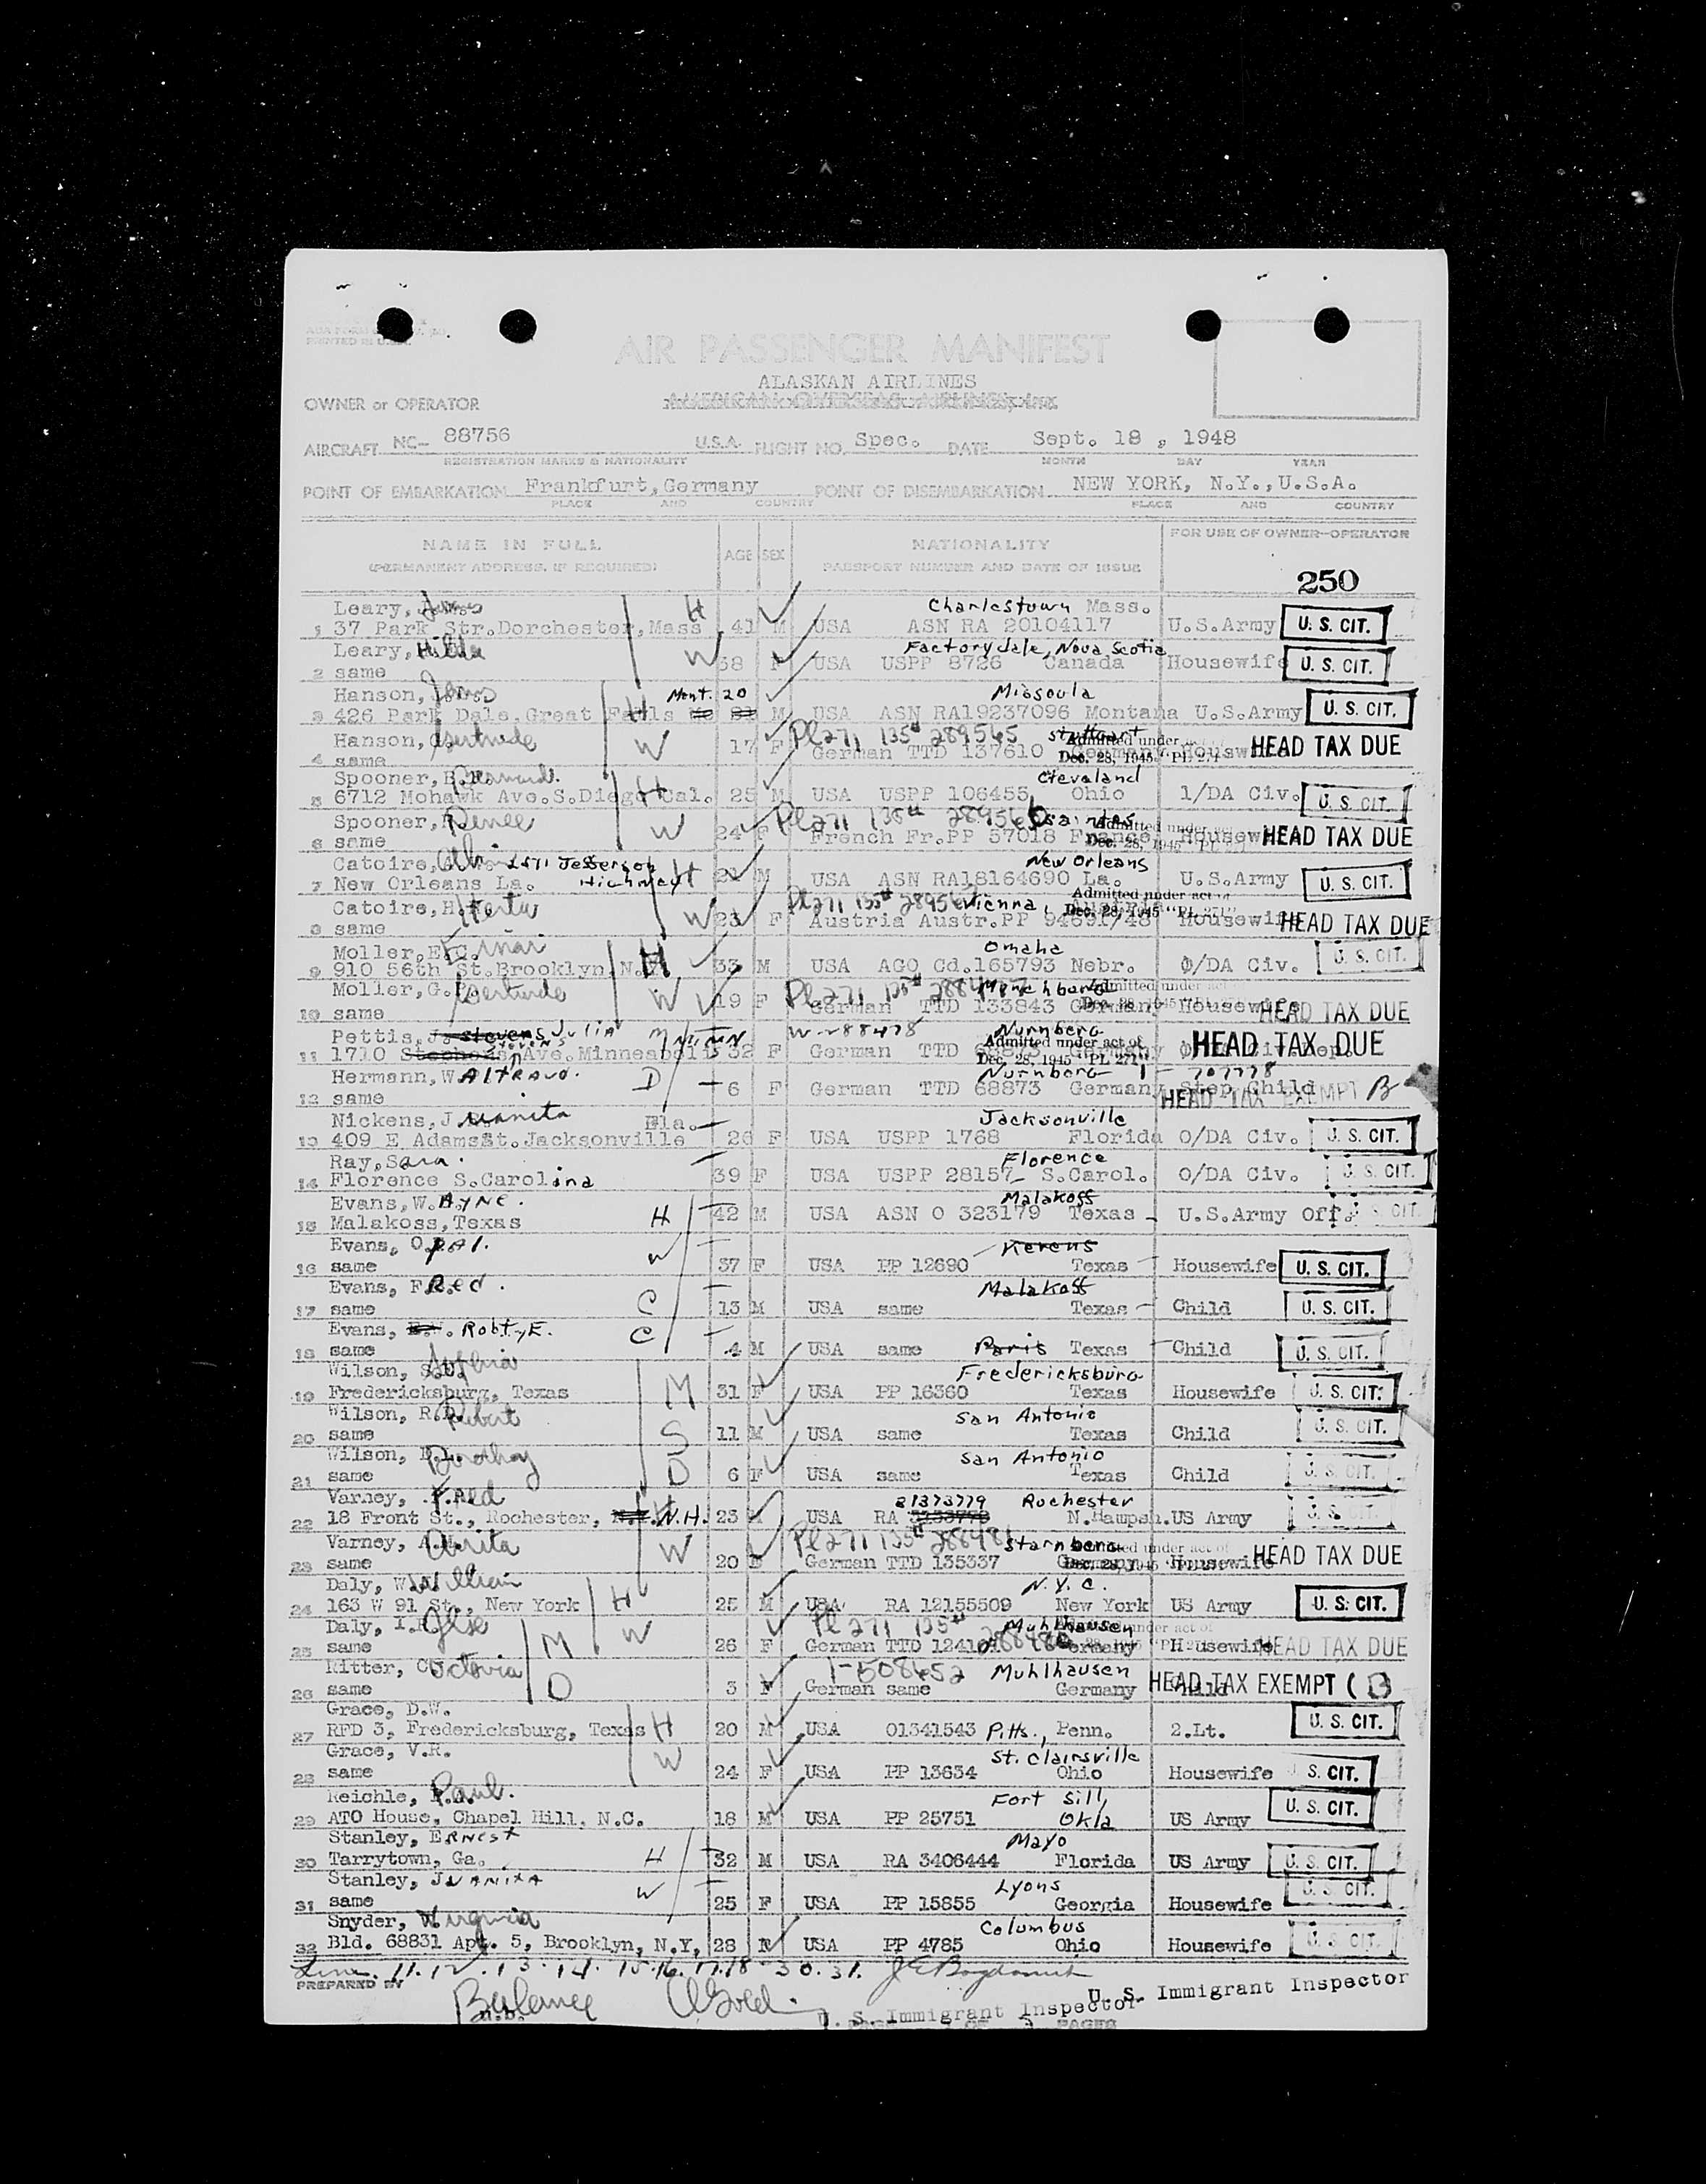 PRINTED IN U.S.A.
AIR PASSENGER MANIFEST
ALASKAN AIRLINES
OWNER or OPERATOR AMERICAN OVERSEAS AIRLINES, Inc.
AIRCRAFT NC- 88756 U.S.A. FLIGHT NO. Spec. DATE Sept. 18 , 1948
REGISTRATION MARKS & NATIONALITY MONTH DAY YEAR
POINT OF EMBARKATION Frankfurt, Germany POINT OF DISEMBARKATION NEW YORK, N.Y., U.S.A.
PLACE AND COUNTRY PLACE AND COUNTRY
NAME IN FULL AGE SEX NATIONALITY FOR USE OF OWNER-OPERATOR
(PERMANENT ADDRESS, IF REQUIRED) PASSPORT NUMBER AND DATE OF ISSUE
250
Leary, James H Charlestown Mass.
1 37 Park Str. Dorchester, Mass 41 M USA ASN RA 20104117 U.S.Army U. S. CIT.
Leary, Hilda W Factorydale, Nova Scotia
2 same 38 F USA USPP 8726 Canada Housewife U. S. CIT.
Hanson, James H Mont. 20 Missoula
3 426 Park Dale, Great Falls M USA ASN RA19237096 Montana U.S.Army U. S. CIT.
Hanson, Gertrude W PL271 135th 289565 Stuttgart Admitted under act
4 same 17 F German TTD 137610 Germany Dec. 28, 1945 "PL 271" Housewife HEAD TAX DUE
Spooner, B. H Cleveland
5 6712 Mohawk Ave. S.Diego Cal. 25 M USA USPP 106455 Ohio 1/DA Civ. U. S. CIT.
Spooner, Renee W PL271 135th 289566 Saintes Admitted under
6 same 24 F French Fr.PP 57018 France Dec. 28, 1945 Housewife HEAD TAX DUE
Catoire, 2511 Jefferson Highway H New Orleans
7 New Orleans La. 21 M USA ASN RA18164690 La. U.S.Army U. S. CIT.
Catoire, Herta W PL271 135th Vienna, Admitted under act
8 same 23 F Austria Austr.PP 94691/48 Dec. 28, 1945 "PL 271" Housewife HEAD TAX DUE
Moller, E. Einar H Omaha
9 910 56th St. Brooklyn N.Y. 33 M USA AGO Cd. 165793 Nebr. O/DA Civ. U. S. CIT.
Moller, G. Gertrude W PL271 135th Admitted under act
10 same 19 F German TTD 133843 Germany Housewife HEAD TAX DUE
Pettis, J. Stevens Julia M MINN W-188478 Nurnberg
11 1710 Stephens Stevens Ave. Minneapolis 32 F German TTD 68873 Germany Admitted under act of Dec. 28, 1945 "PL 271" HEAD TAX DUE
Hermann, WAltraud. D Nurnberg 1-707778
12 same 6 F German TTD 68873 Germany Step Child HEAD TAX EXEMPT B
Nickens, Juanita Fla. Jacksonville
13 409 E Adams St. Jacksonville 26 F USA USPP 1768 Florida O/DA Civ. U. S. CIT.
Ray, Sara. Florence
14 Florence S.Carolina 39 F USA USPP 28157 S.Carol. O/DA Civ. U. S. CIT.
Evans, W.Ayne. Malakoff
15 Malakoss, Texas H 42 M USA ASN O 323179 Texas U.S.Army Off. U. S. CIT.
Evans, Opal. W Kerens
16 same 37 F USA PP 12690 Texas Housewife U. S. CIT.
Evans, Fred. C Malakoff
17 same 13 M USA same Texas Child U. S. CIT.
Evans, Robt. E. C
18 same 4 M USA same Paris Texas Child U. S. CIT.
Wilson, Sophia Fredericksburg
19 Fredericksburg, Texas M 31 F USA PP 16360 Texas Housewife U. S. CIT.
Wilson, R.D. Robert San Antonio
20 same S 11 M USA same Texas Child U. S. CIT.
Wilson, D.L. Dorothy San Antonio
21 same D 6 F USA same Texas Child U. S. CIT.
Varney, Fred H 21373779 Rochester
22 18 Front St., Rochester, N.H. 23 M USA RA N.Hampsh. US Army U. S. CIT.
Varney, Anita W PL271 135th 288481 Starnberg Admitted under act of
23 same 20 F German TTD 135337 Germany Housewife HEAD TAX DUE
Daly, William N.Y.C.
24 163 W 91 St., New York H 25 M USA RA 12155509 New York US Army U. S. CIT.
Daly, I. Ilse W PL 271 135th Muhlhausen
25 same M 26 F German TTD Germany Housewife HEAD TAX DUE
Ritter, Octavia 1-508652 Muhlhausen
26 same D 3 F German same Germany Child HEAD TAX EXEMPT (B
Grace, D.W.
27 RFD 3, Fredericksburg, Texas H 20 M USA 01341543 Pitts., Penn. 2.Lt. U. S. CIT.
Grace, V.R. W St. Clairsville
28 same 24 F USA PP 13634 Ohio Housewife U. S. CIT.
Reichle, Paul. Fort Sill,
29 ATO House, Chapel Hill, N.C. 18 M USA PP 25751 Okla US Army U. S. CIT.
Stanley, Ernest Mayo
30 Tarrytown, Ga. H 32 M USA RA 3406444 Florida US Army U. S. CIT.
Stanley, Juanita Lyons
31 same W 25 F USA PP 15855 Georgia Housewife U. S. CIT.
Snyder, Virginia Columbus
32 Bld. 68831 Apt. 5, Brooklyn, N.Y. 28 F USA PP 4785 Ohio Housewife U. S. CIT.
Line. 11. 12. 13. 14. 15. 16. 17. 18 30. 31.
PREPARED BY U. S. Immigrant Inspector
Balance U. S. Immigrant Inspector
PAGES